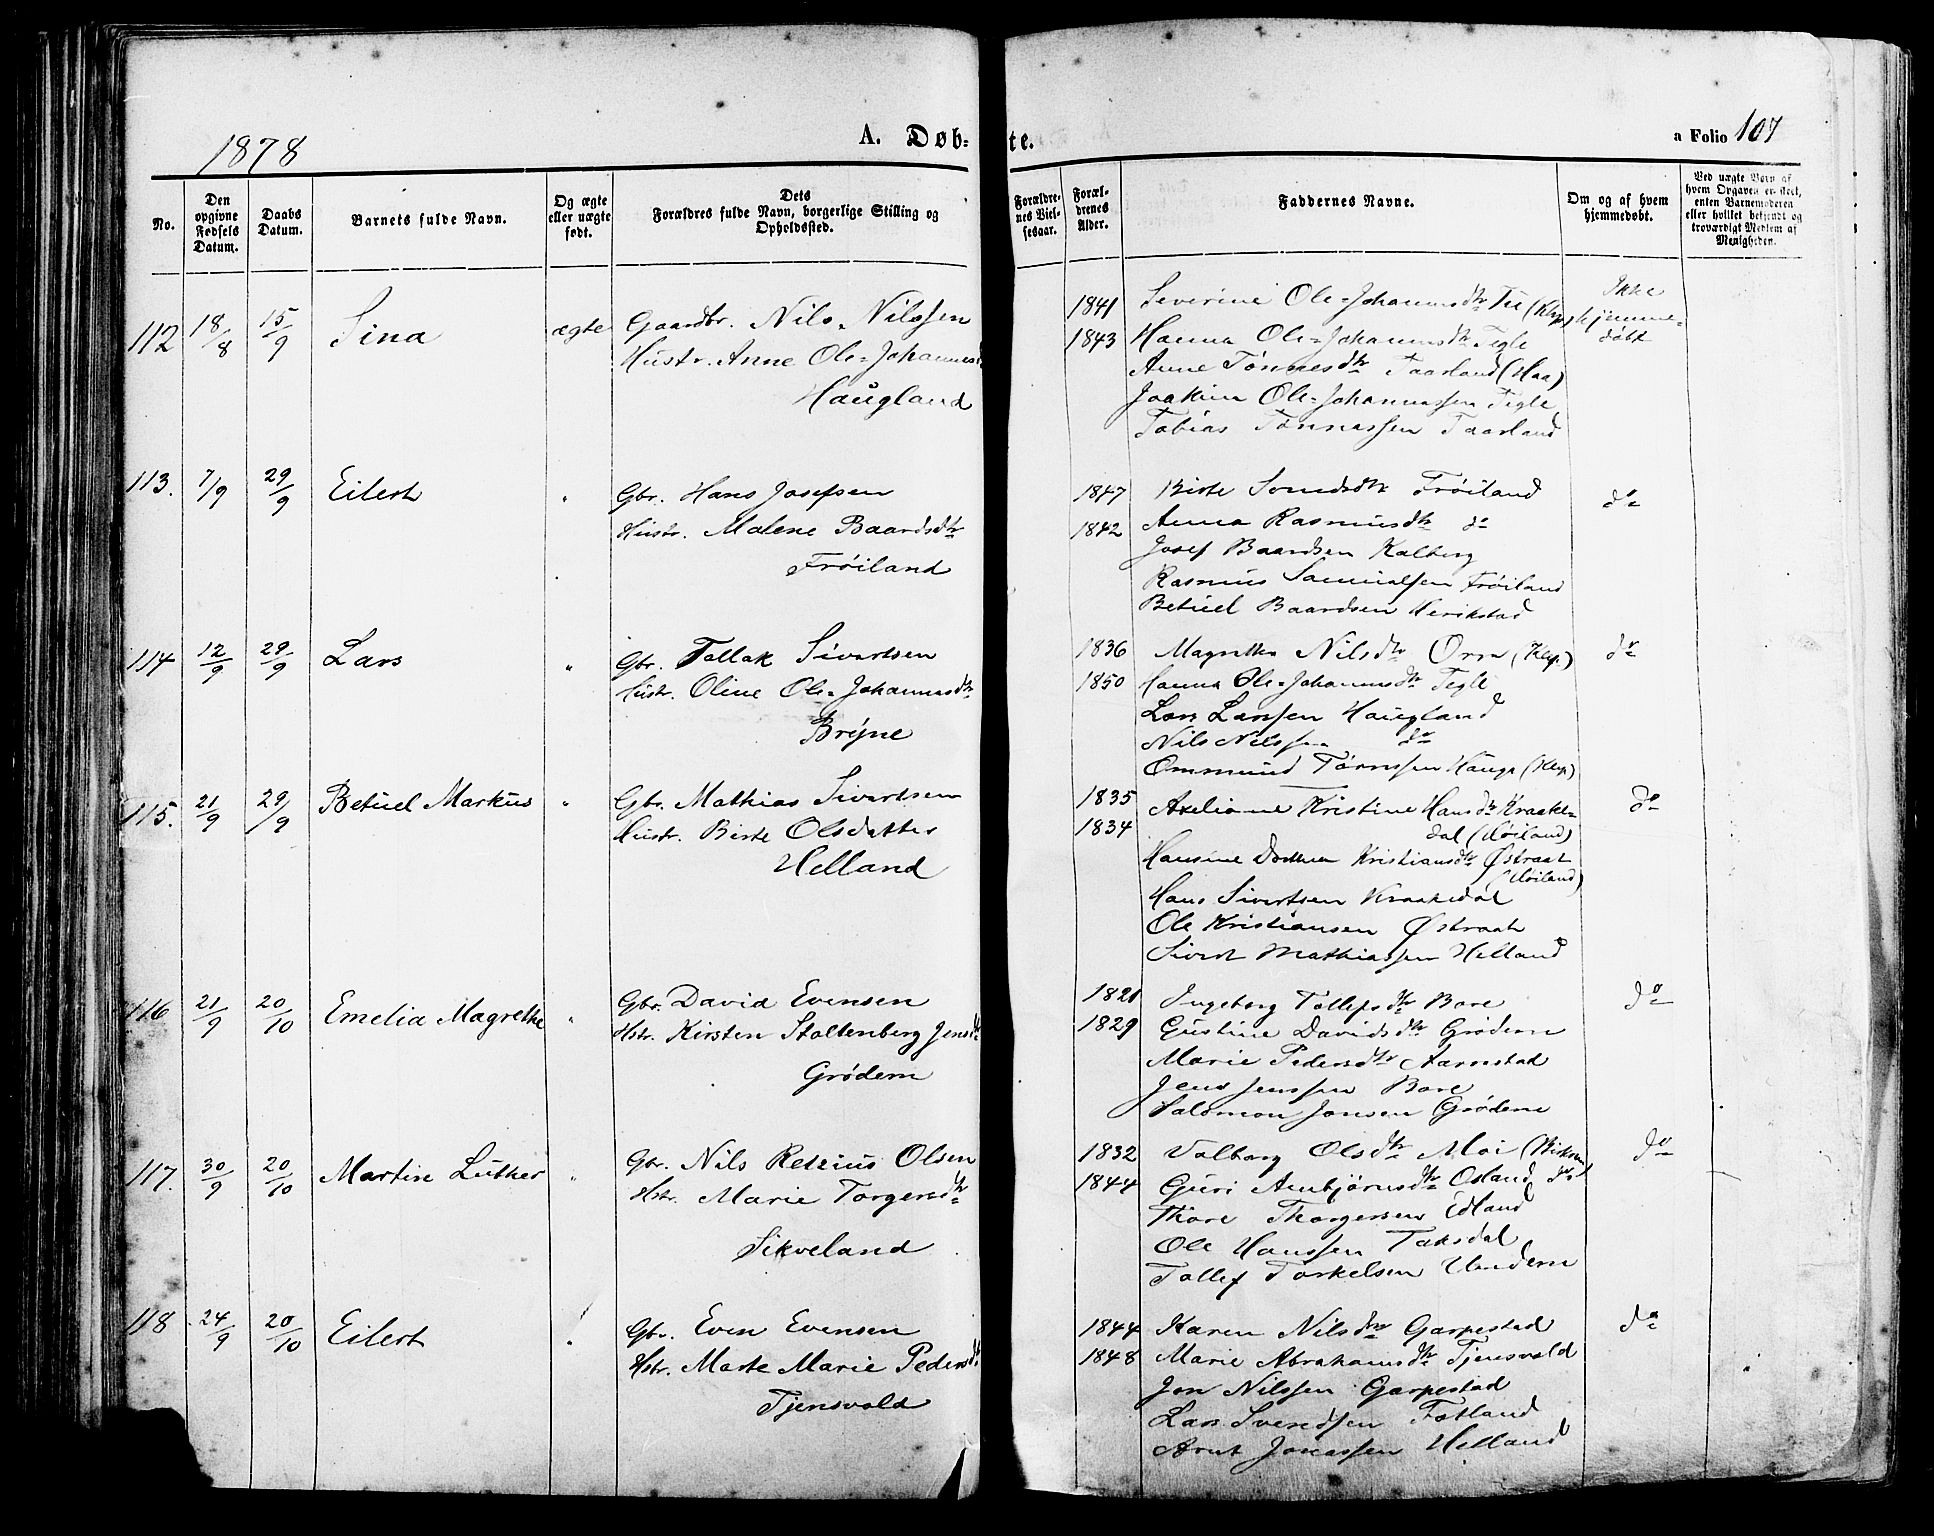 1878
A. Døb-
te.
a Folio 107
No.
Den opgivne Fødsels Datum.
Daabs Datum.
Barnets fulde Navn.
Og ægte eller uægte født.
Dets Forældres fulde Navn, borgerlige Stilling og Opholdssted.
Forældrenes Vielsesaar.
Forældrenes Alder.
Faddernes Navne.
Om og af hvem hjemmedøbt.
Ved uægte Børn af hvem Opgaven er skeet, enten Barnemoderen eller hvilket bekjendt og troværdigt Medlem af Menigheden.
112 18/8 15/9 Sina ægte Gaardbr. Nils Nilssen
Hustr. Anne Ole-Johannesd
Haugland
1841 Severine Ole-Johannesdtr Tu (Klep) Ikke
1843 Hanna Ole-Johannesdtr Tegle hjemme-
døbt
Anne Tønnesdtr Taarland (Haa)
Joakim Ole-Johannessen Tegle
Tobias Tønnessen Taarland
113. 7/9 29/9 Eilert " Gbr. Hans Josefsen
Hustr. Malene Baardsdtr
Frøiland
1847 Birte Svendsdtr Frøiland do
1842 Anna Rasmusdtr do
Josef Baardsen Kalberg
Rasmus Samuelsen Frøiland
Betuel Baardsen Herikstad
114 12/9 29/9 Lars " Gbr. Tallak Sivertsen
Hustr. Oline Ole-Johannesdtr
Bryne
1836 Magrethe Nilsdtr Orre (Klep) do
1850 Hanna Ole-Johannesdtr Tegle
Lars Larssen Haugland
Nils Nilssen do
Ommund Tørressen Hauge (Klep)
115. 21/9 29/9 Betuel Markus " Gbr. Mathias Sivertsen
Hustr. Birte Olsdatter
Helland
1835 Axeliane Kristine Hansdtr Kraake-
1834 dal (Høiland) do
Hansine Dorthea Kristiansdtr Østraat
(Høiland)
Hans Sivertsen Kraakedal
Ole Kristiansen Østraat
Sivert Mathiassen Helland
116 21/9 20/10 Emelia Magrethe " Gbr. David Evensen
Hstr. Kirsten Stoltenberg Jensdtr
Grødem
1821 Ingeborg Tollefsdtr Bore do
1829 Gustine Davidsdtr Grødem
Marie Pedersdtr Aarrestad
Jens Jenssen Bore
Salomon Jonsen Grødem
117. 30/9 20/10 Martin Luther " Gbr. Nils Retzius Olsen
Hstr. Marie Torgersdtr
Sikveland
1832 Valborg Olsdtr Moi do
1844 Guri Aanbjørnsdtr Osland do
Thore Thorgersen Edland
Ole Hanssen Taksdal
Tollef Torkelsen Undem
118 24/9 20/10 Eilert " Gbr. Even Evensen
Hstr. Marte Marie Pedersdt
Tjensvold
1844 Karen Nilsdtr Garpestad do
1848 Marie Abrahamsdtr Tjensvold
Jon Nilssen Garpestad
Lars Svendsen Fotland
Arnt Jonassen Helland